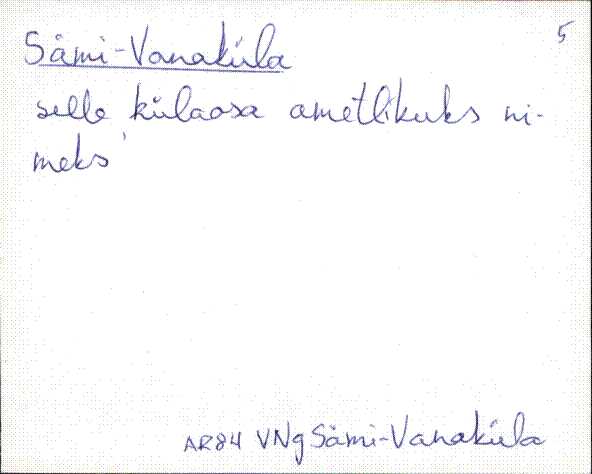 5
Sämi-Vanaküla
selle külaosa ametlikuks ni-
meks
AR84 VNg Sämi-Vanaküla